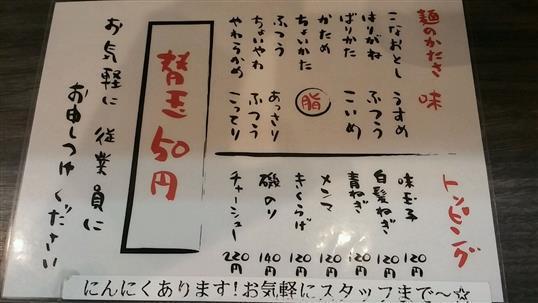 麺のかたさ
こなおとし
はりがね
ばりかた
かため
ちょいかた
ふつう
ちょいやわ
やわらかめ
味
うすめ
ふつう
こいめ
脂
あっさり
ふつう
こってり
トッピング
味玉子 120円
白髪ねぎ 120円
青ねぎ 120円
メンマ 120円
きくらげ 120円
磯のり 140円
チャーシュー 220円
替玉50円
お気軽に従業員に
お申しつけください
にんにくあります!お気軽にスタッフまで〜☆